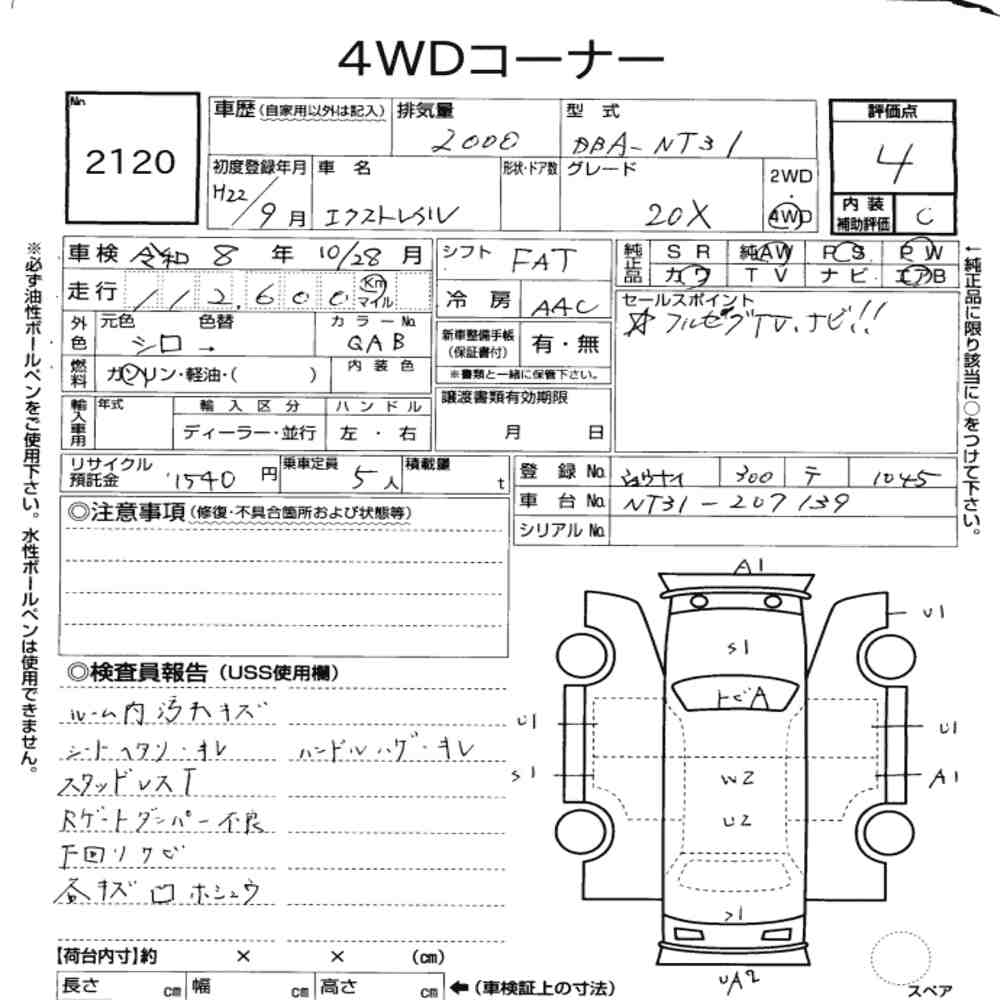 4WDコーナー
No.
2120
車歴 (自家用以外は記入)
排気量
2000
型 式
DBA-NT31
評価点
4
初度登録年月
H22/9月
車 名
エクストレイル
形状・ドア数
グレード
20X
2WD
・
4WD
内 装
補助評価
C
車検 令和 8 年 10/28 月
走行 112,600 Km マイル
外色
元色 色替
シロ →
カ ラ ー No.
QAB
燃料
ガソリン・軽油・( )
内 装 色
輸入車用
年式
輸 入 区 分
ディーラー・並行
ハ ン ド ル
左 ・ 右
シフト FAT
冷 房 AAC
新車整備手帳
(保証書付)
有・無
※書類と一緒に保管下さい。
譲渡書類有効期限
月 日
純正品
S R 純AW P S P W
カ ワ T V ナ ビ エアB
セールスポイント
☆フルセグTV、ナビ!!
リサイクル
預託金
1540 円
乗車定員
5 人
積載量
t
登 録 No. 300 テ 1045
車 台 No. NT31-207139
シリアル No.
◎注意事項 (修復・不具合箇所および状態等)
◎検査員報告 (USS使用欄)
ルーム内汚れキズ
シートヘタリ・キレ ハンドルハゲ・キレ
スタッドレスT
Rゲートダンパー不良
下回りサビ
各キズ凹ホシュウ
【荷台内寸】約 × × (cm)
長さ cm 幅 cm 高さ cm ←(車検証上の寸法)
A1
U1
S1
トビA
U1
U1
S1
A1
W2
U2
S1
UA2
スペア
※必ず油性ボールペンをご使用下さい。水性ボールペンは使用できません。
←純正品に限り該当に○をつけて下さい。